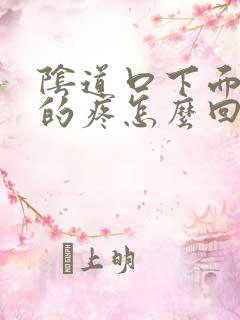 陰道口下面
的疼怎麼回
上明